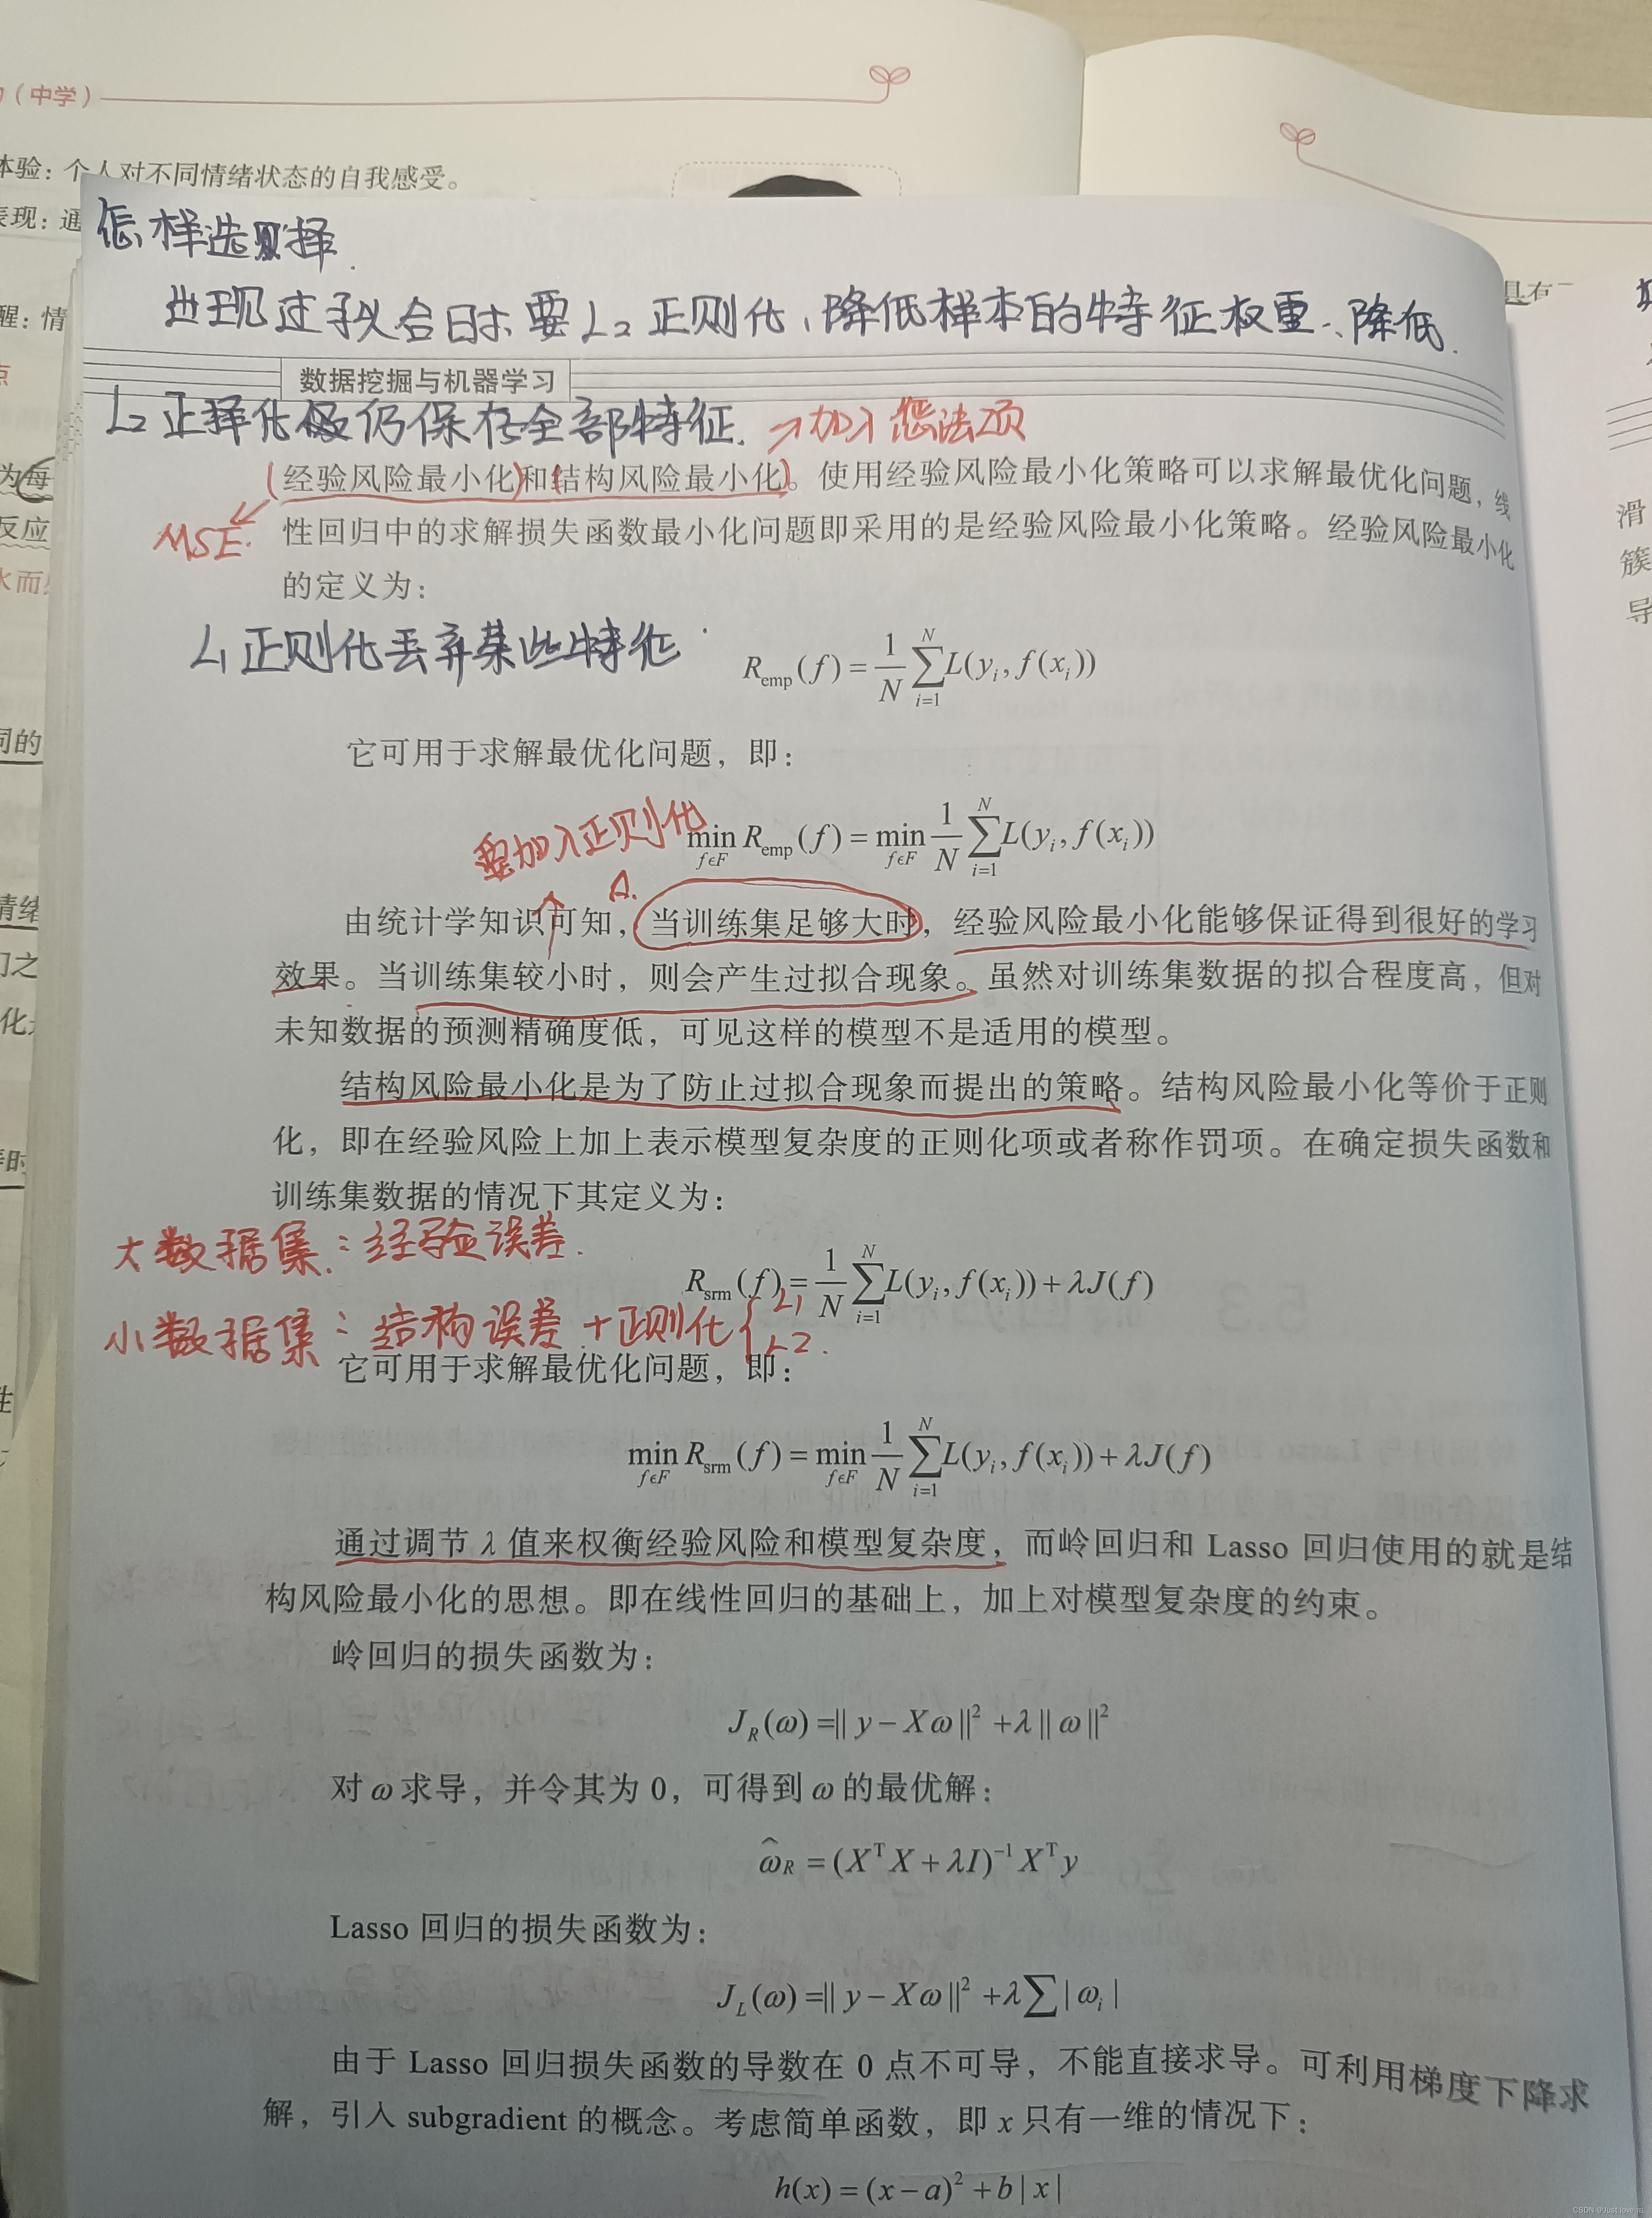 （中学）
体验：个人对不同情绪状态的自我感受。
表现：通
醒：情
点
为每
反应
水而
同的
情绪
们之
具有
滑
簇
导
怎样选择.
出现过拟合时要L2正则化,降低样本的特征权重、降低.
数据挖掘与机器学习
L2正择化仍保存全部特征. →加入惩法项
（经验风险最小化）和（结构风险最小化）。使用经验风险最小化策略可以求解最优化问题，线
MSE.
性回归中的求解损失函数最小化问题即采用的是经验风险最小化策略。经验风险最小化
的定义为：
L1正则化丢弃某些特征
R_emp(f) = 1/N ∑_{i=1}^{N} L(y_i, f(x_i))
它可用于求解最优化问题，即：
要加入正则化
min_{fϵF} R_emp(f) = min_{fϵF} 1/N ∑_{i=1}^{N} L(y_i, f(x_i))
由统计学知识可知，当训练集足够大时，经验风险最小化能够保证得到很好的学习
效果。当训练集较小时，则会产生过拟合现象。虽然对训练集数据的拟合程度高，但对
未知数据的预测精确度低，可见这样的模型不是适用的模型。
结构风险最小化是为了防止过拟合现象而提出的策略。结构风险最小化等价于正则
化，即在经验风险上加上表示模型复杂度的正则化项或者称作罚项。在确定损失函数和
训练集数据的情况下其定义为：
大数据集：经验误差.
R_srm(f) = 1/N ∑_{i=1}^{N} L(y_i, f(x_i)) + λJ(f)
小数据集：结构误差+正则化{L1 L2.
它可用于求解最优化问题，即：
min_{fϵF} R_srm(f) = min_{fϵF} 1/N ∑_{i=1}^{N} L(y_i, f(x_i)) + λJ(f)
通过调节 λ 值来权衡经验风险和模型复杂度，而岭回归和 Lasso 回归使用的就是结
构风险最小化的思想。即在线性回归的基础上，加上对模型复杂度的约束。
岭回归的损失函数为：
J_R(ω) =|| y − Xω ||² + λ || ω ||²
对 ω 求导，并令其为 0，可得到 ω 的最优解：
ω̂_R = (X^T X + λI)^{−1} X^T y
Lasso 回归的损失函数为：
J_L(ω) =|| y − Xω ||² + λ∑| ω_i |
由于 Lasso 回归损失函数的导数在 0 点不可导，不能直接求导。可利用梯度下降求
解，引入 subgradient 的概念。考虑简单函数，即 x 只有一维的情况下：
h(x) = (x − a)² + b | x |